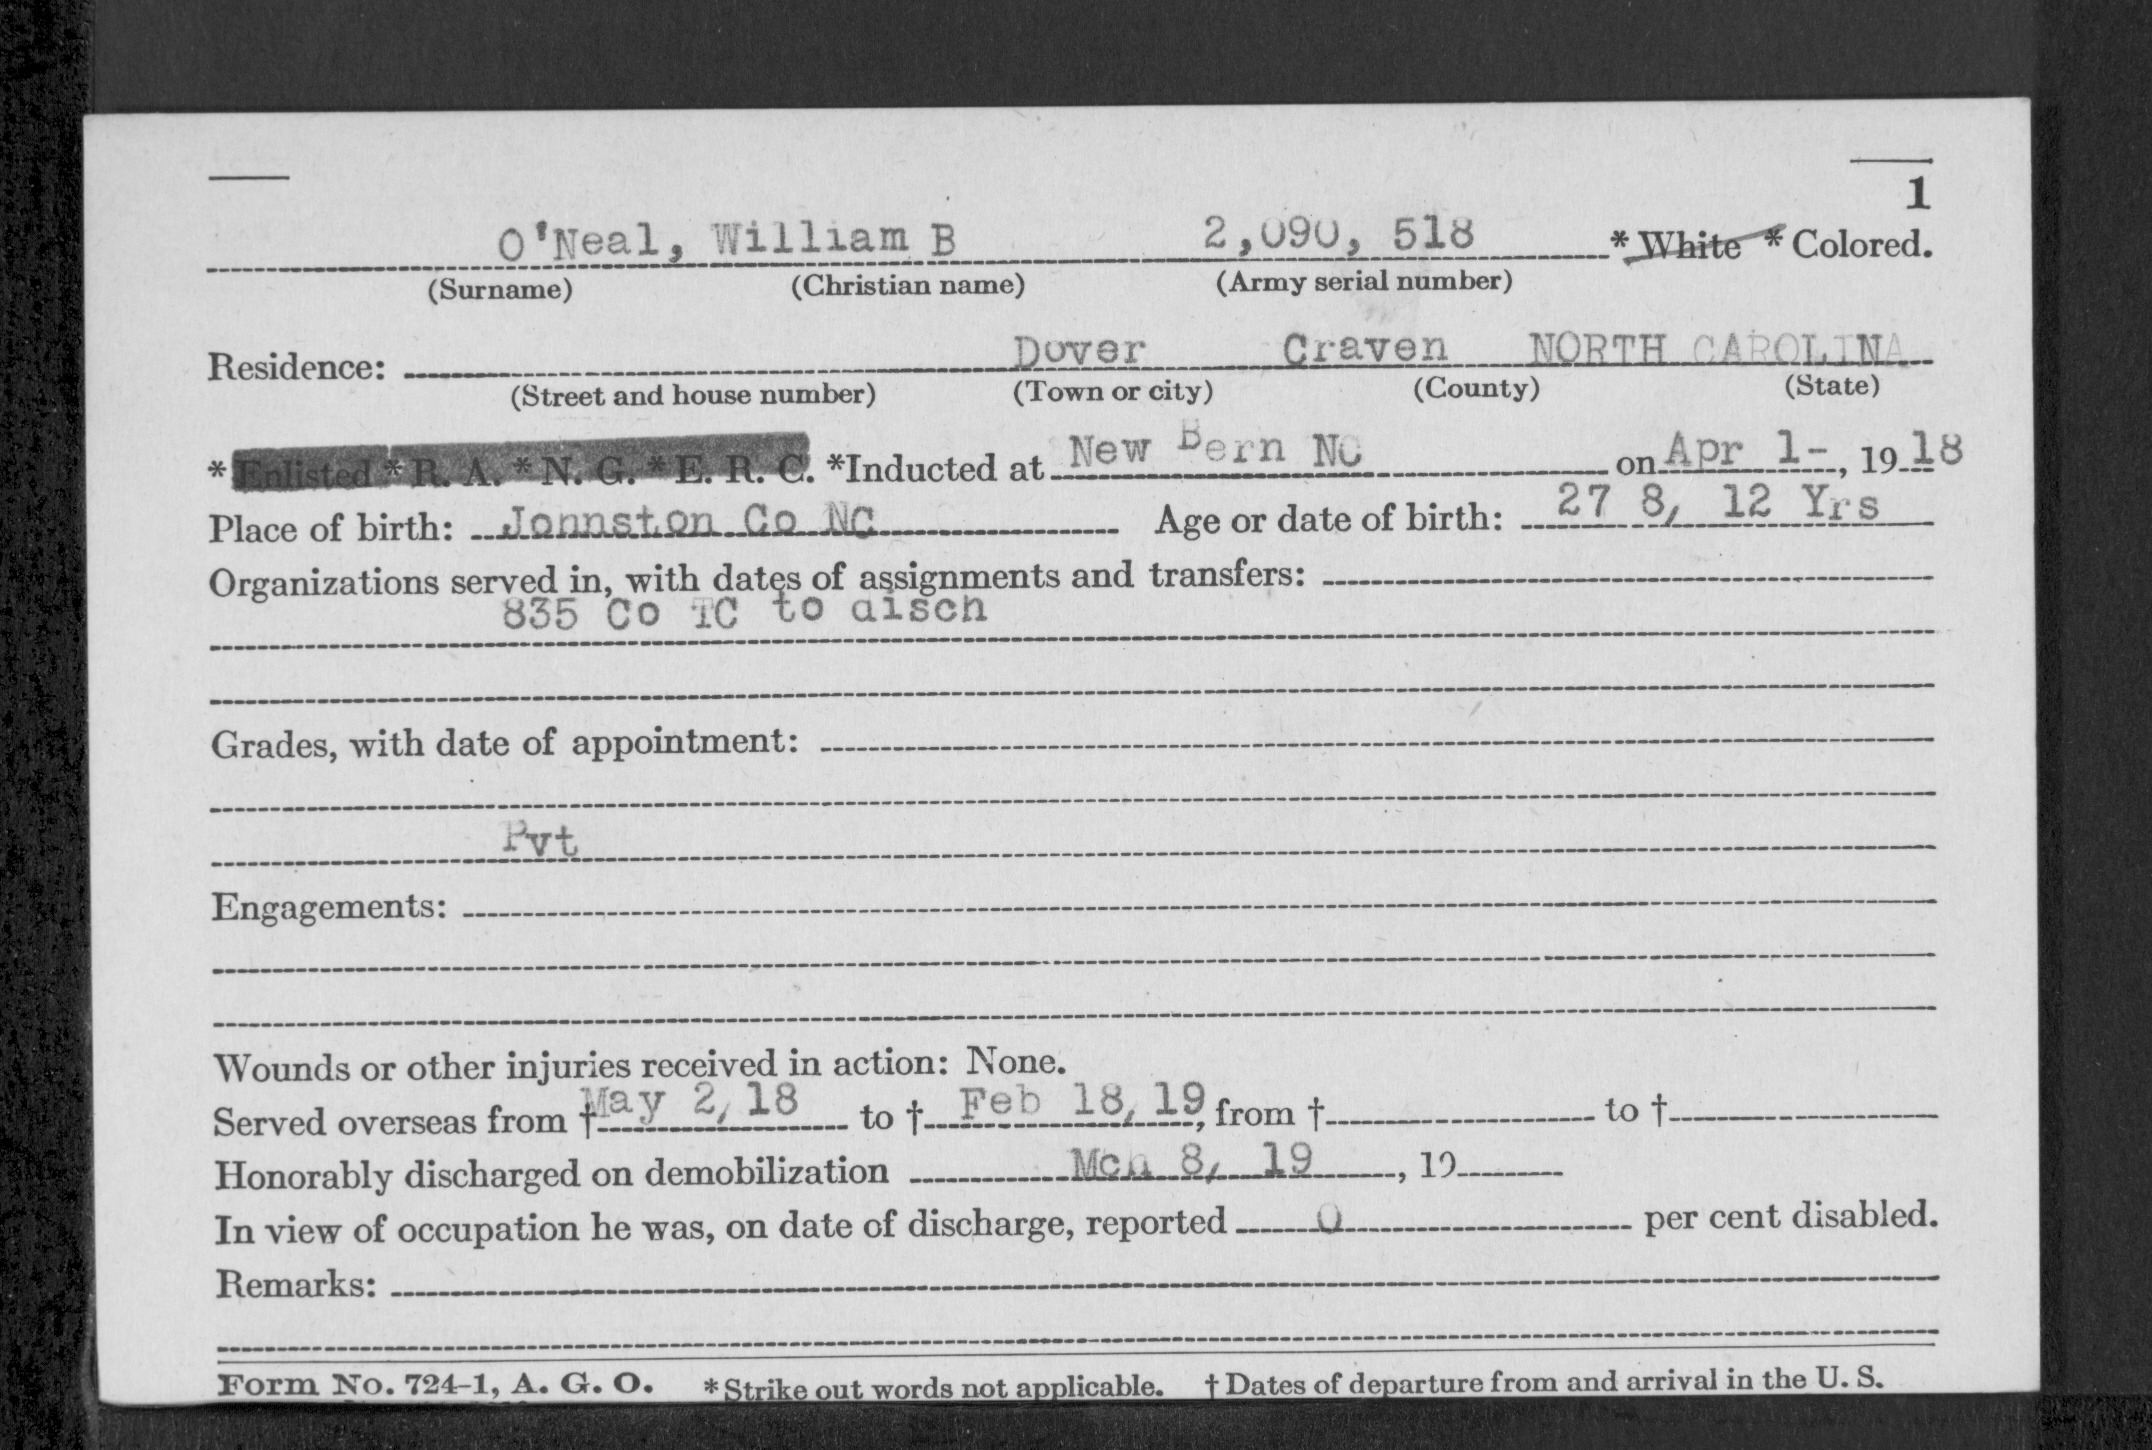 1
O'Neal, William B 2,090, 518 *White *Colored.
(Surname) (Christian name) (Army serial number)
Residence: Dover Craven NORTH CAROLINA
(Street and house number) (Town or city) (County) (State)
*Enlisted *R. A. *N. G. *E. R. C. *Inducted at New Bern NC on Apr 1-, 1918
Place of birth: Johnston Co NC Age or date of birth: 27 8/12 Yrs
Organizations served in, with dates of assignments and transfers:
835 Co TC to disch
Grades, with date of appointment:
Pvt
Engagements:
Wounds or other injuries received in action: None.
Served overseas from † May 2/18 to † Feb 18/19, from † to †
Honorably discharged on demobilization Mch 8/19, 19
In view of occupation he was, on date of discharge, reported 0 per cent disabled.
Remarks:
Form No. 724-1, A. G. O. *Strike out words not applicable. † Dates of departure from and arrival in the U. S.